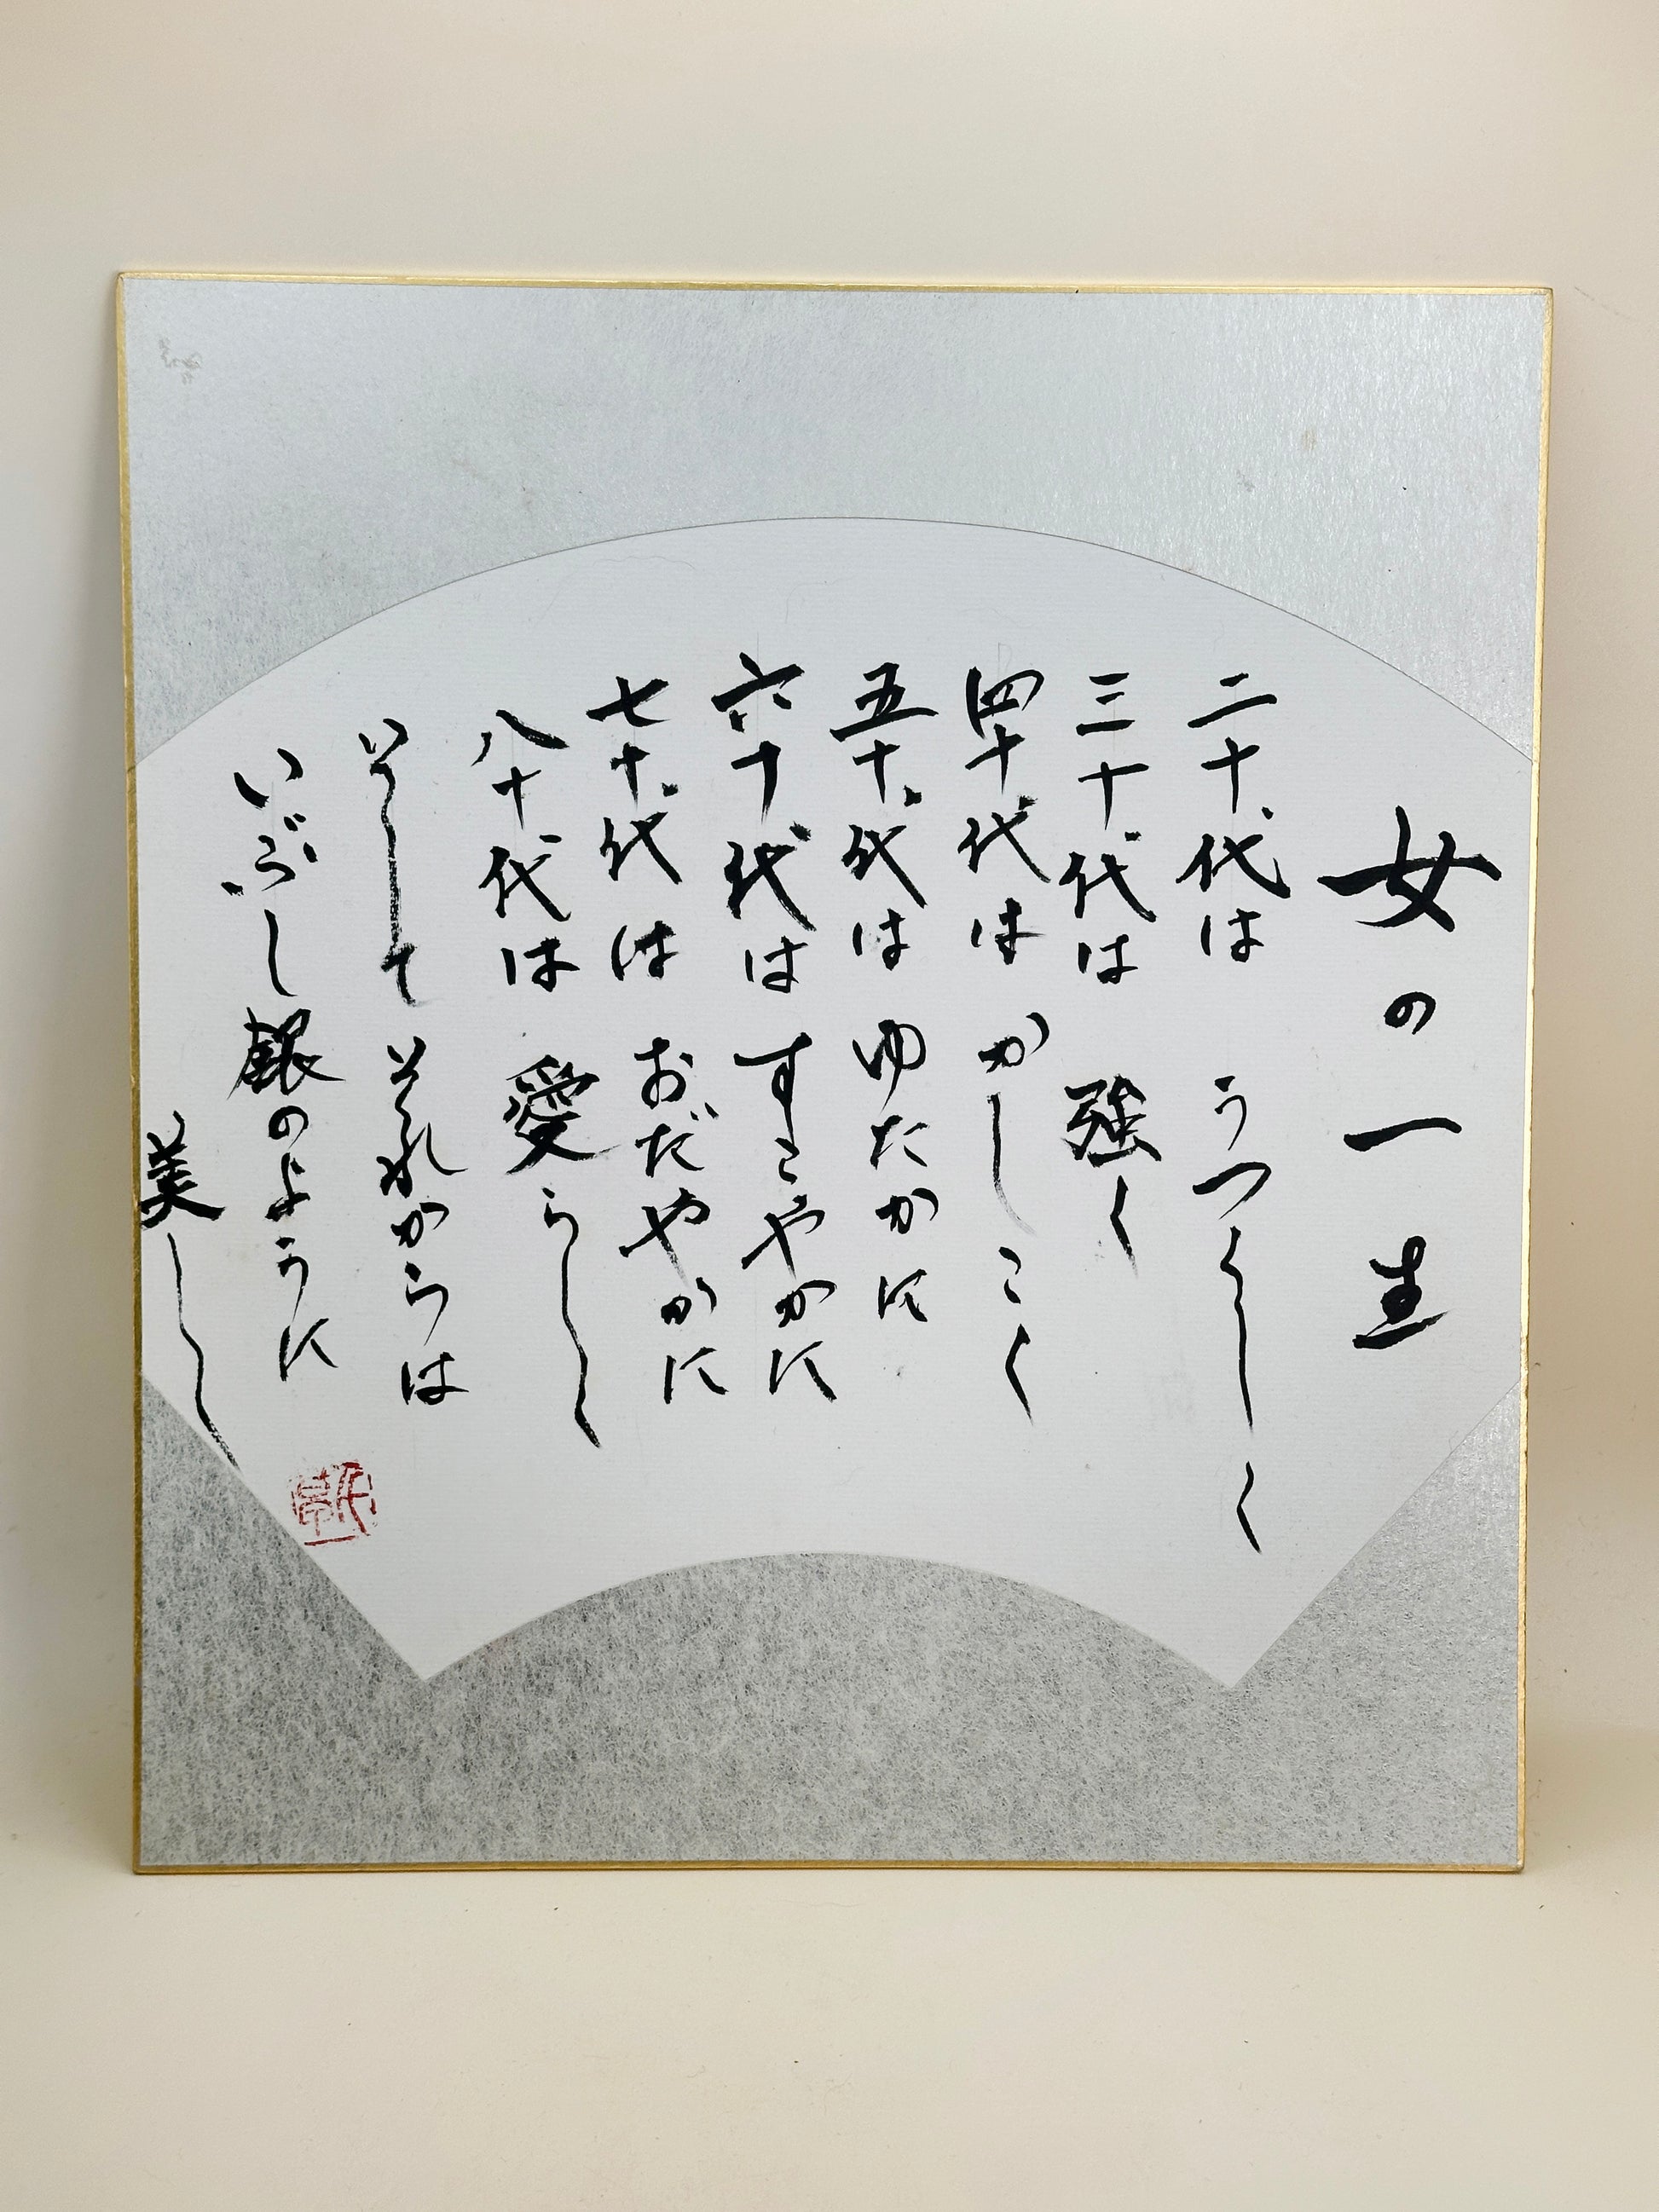 女の一生
二十代は うつくしく
三十代は 強く
四十代は かしこく
五十代は ゆたかに
六十代は すこやかに
七十代は おだやかに
八十代は 愛らしく
そして それからは
いぶし銀のように
美しく